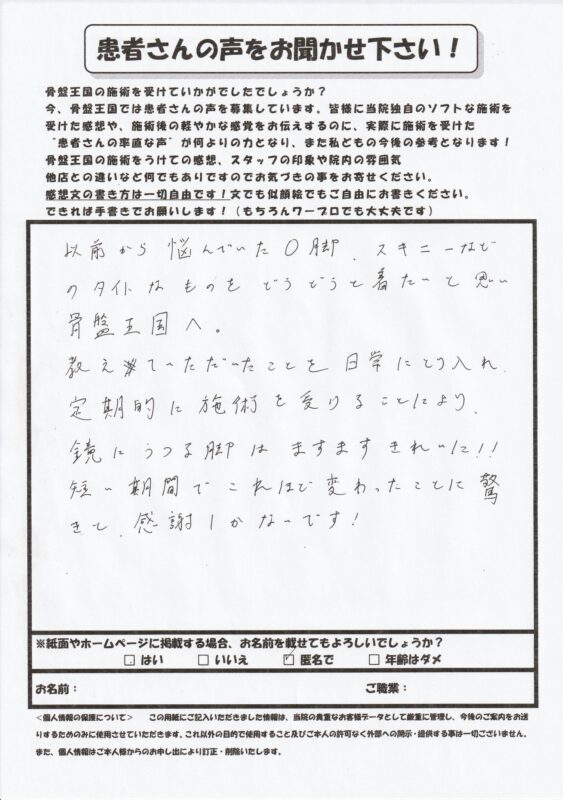 患者さんの声をお聞かせ下さい！
骨盤王国の施術を受けていかがでしたでしょうか？
今、骨盤王国では患者さんの声を募集しています。皆様に当院独自のソフトな施術を
受けた感想や、施術後の軽やかな感覚をお伝えするのに、実際に施術を受けた
“患者さんの率直な声”が何よりの力となり、また私どもの今後の参考となります！
骨盤王国の施術をうけての感想、スタッフの印象や院内の雰囲気
他店との違いなど何でもありですのでお気づきの事をお寄せください。
感想文の書き方は一切自由です！文でも似顔絵でもご自由にお書きください。
できれば手書きでお願いします！（もちろんワープロでも大丈夫です）
以前から悩んでいたO脚、スキニーなど
のタイトなものをどうどうと着たいと思い
骨盤王国へ。
教えていただいたことを日常にとり入れ、
定期的に施術を受けることにより、
鏡にうつる脚はますますきれいに!!
短い期間でこれほど変わったことに驚
きと、感謝しかないです！
※紙面やホームページに掲載する場合、お名前を載せてもよろしいでしょうか？
□ はい □ いいえ ☑ 匿名で □ 年齢はダメ
お名前： ご職業：
＜個人情報の保護について＞ この用紙にご記入いただきました情報は、当院の貴重なお客様データとして厳重に管理し、今後のご案内をお送
りするためのみに使用させていただきます。これ以外の目的で使用すること及びご本人の許可なく外部への開示・提供する事は一切ございません。
また、個人情報はご本人様からのお申し出により訂正・削除いたします。